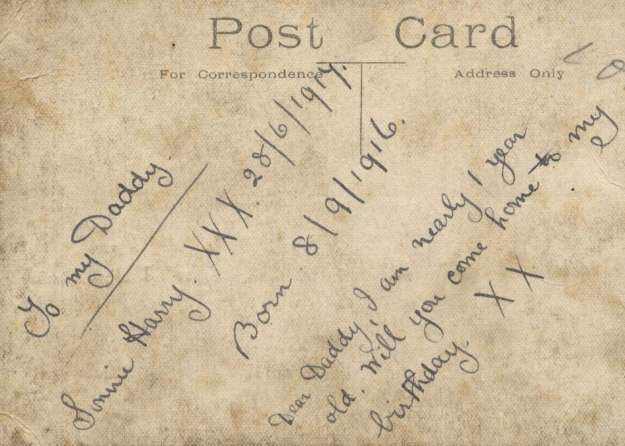 Post Card
For Correspondence
Address Only
To my Daddy
Sonnie Harry. XXX. 28/6/1917.
Born 8/9/1916.
Dear Daddy I am nearly 1 year
old. Will you come home to my
birthday. X X